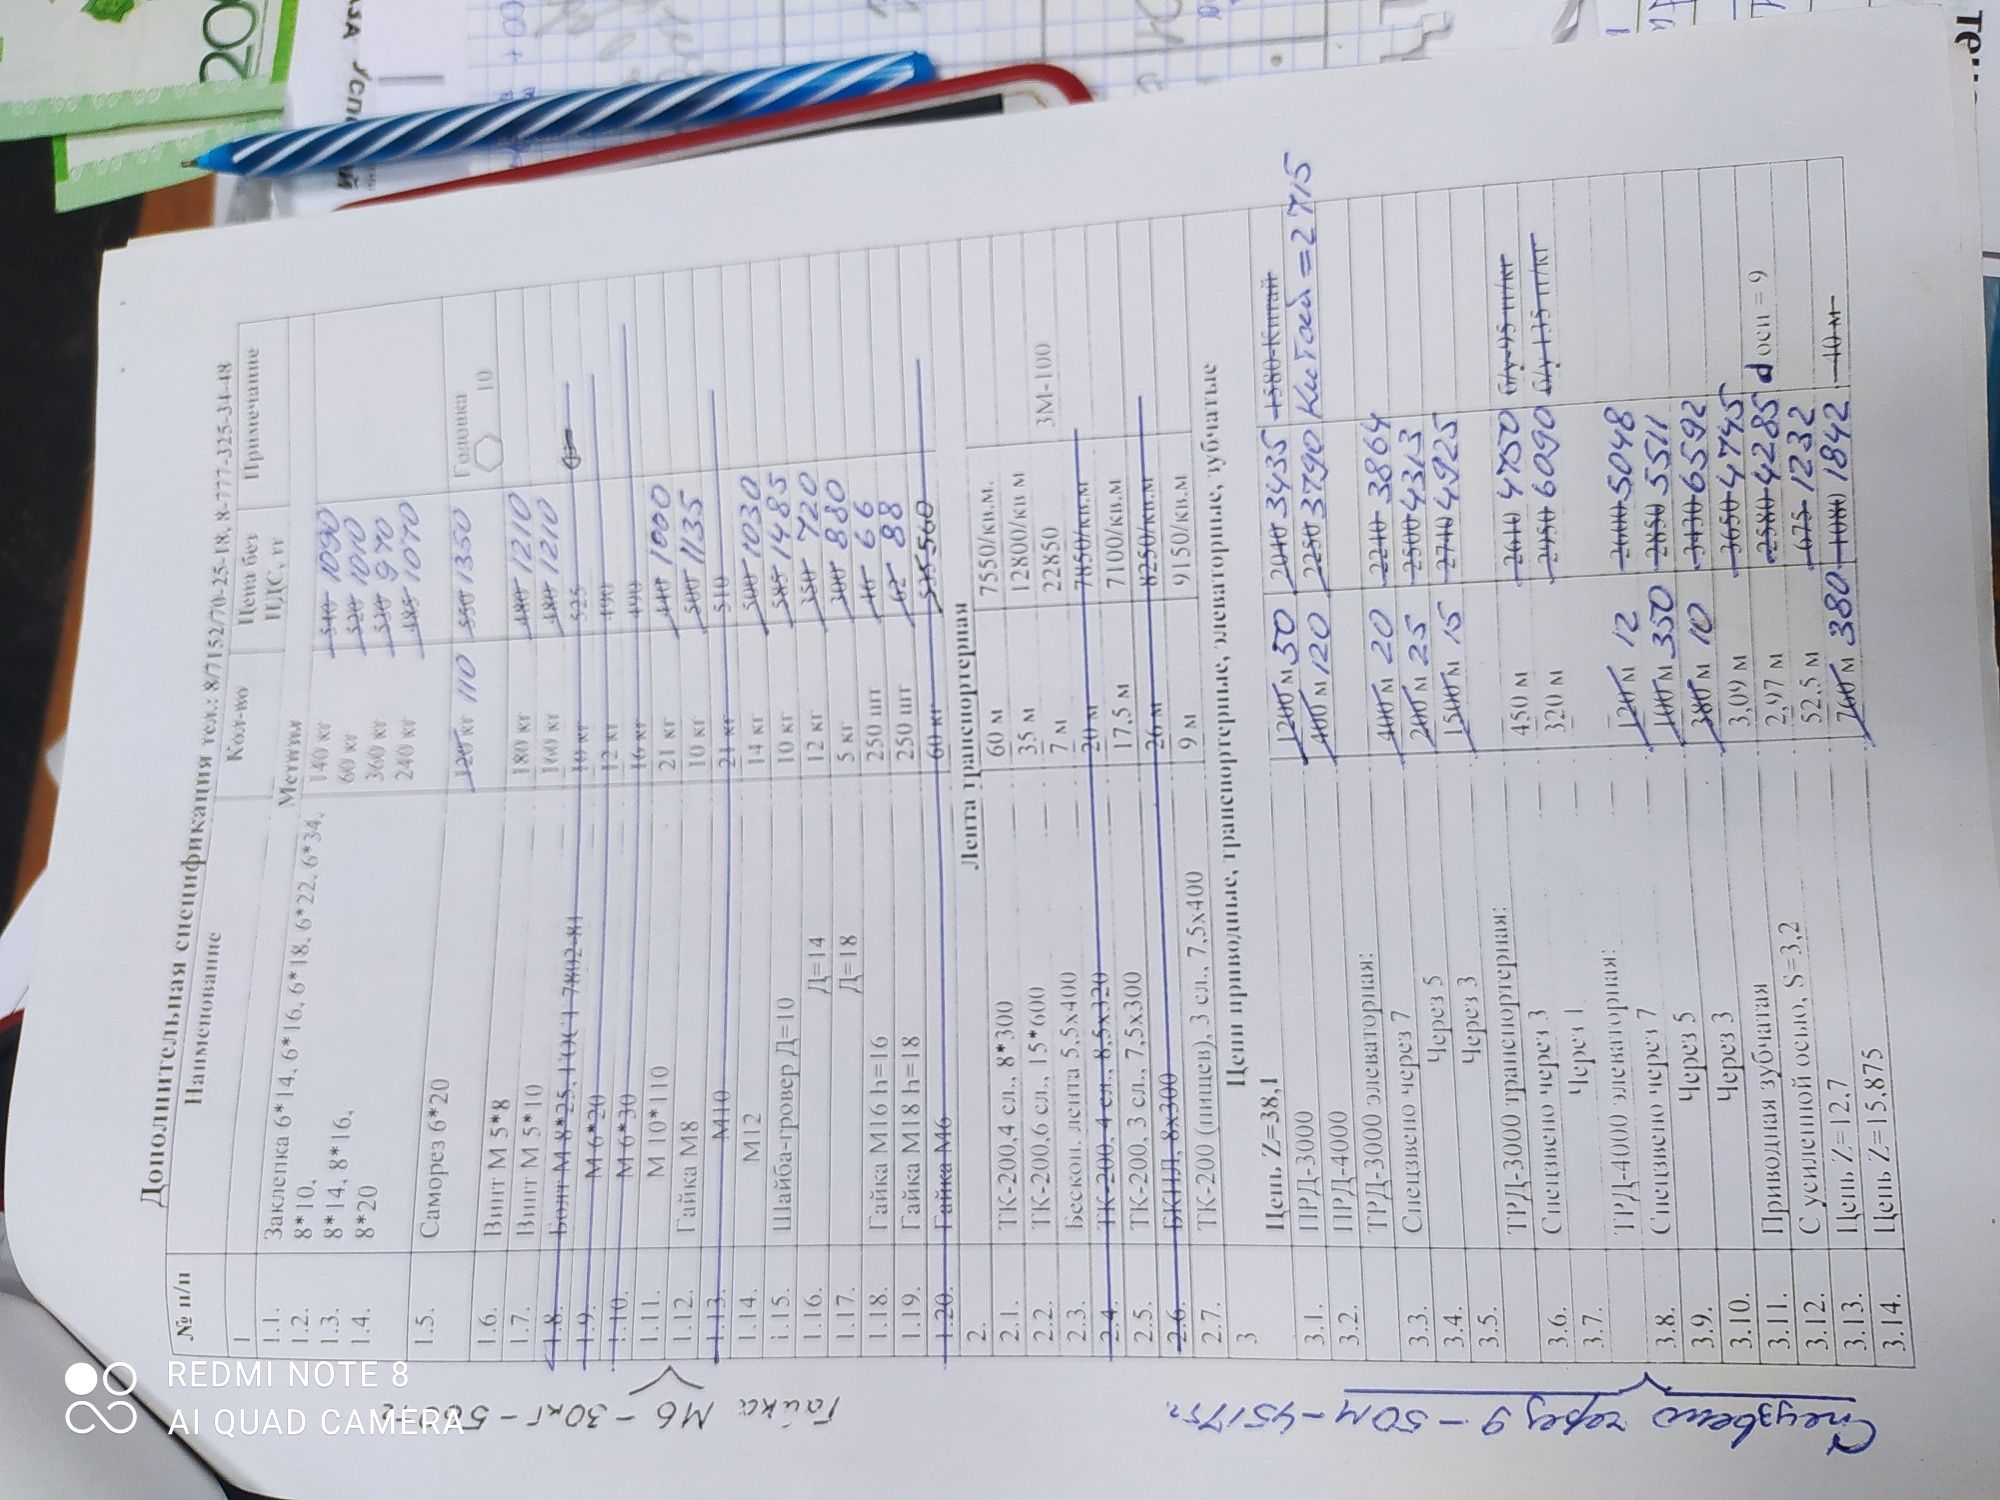 Дополнительная спецификация тел.: 8/7152/70-25-18, 8-777-325-34-48
№ п/п Наименование Кол-во Цена без НДС, тг Примечание
1 Метизы
1.1. Заклепка 6*14, 6*16, 6*18, 6*22, 6*34, 140 кг 540 1090
1.2. 8*10, 60 кг 520 1010
1.3. 8*14, 8*16, 360 кг 970
1.4. 8*20 240 кг 485 1070
1.5. Саморез 6*20 120 кг 110 550 1350 Головка 10
1.6. Винт М 5*8 180 кг 480 1210
1.7. Винт М 5*10 160 кг 480 1210
1.8. Болт М 8*25, ГОСТ 7802-81 10 кг 525
1.9. М 6*20 12 кг 490
1.10. М 6*30 16 кг 490
1.11. М 10*110 21 кг 440 1000
1.12. Гайка М8 10 кг 500 1135
1.13. М10 21 кг 510
1.14. М12 14 кг 500 1030
1.15. Шайба-гровер Д=10 10 кг 585 1485
1.16. Д=14 12 кг 350 720
1.17. Д=18 5 кг 300 880
1.18. Гайка М16 h=16 250 шт 40 66
1.19. Гайка М18 h=18 250 шт 62 88
1.20. Гайка М6 60 кг 535 560
2. Лента транспортерная
2.1. ТК-200,4 сл., 8*300 60 м 7550/кв.м.
2.2. ТК-200,6 сл., 15*600 35 м 12800/кв м
2.3. Бескон. лента 5,5х400 7 м 22850 3М-100
2.4. ТК-200, 4 сл., 8,5х320 20 м 7850/кв.м
2.5. ТК-200, 3 сл., 7,5х300 17,5 м 7100/кв.м
2.6. БКНЛ, 8х300 26 м 8250/кв.м
2.7. ТК-200 (пищев), 3 сл., 7,5х400 9 м 9150/кв.м
3 Цепи приводные, транспортерные, элеваторные, зубчатые
Цепь Z=38,1
3.1. ПРД-3000 1200 м 50 2040 3435 1580-Китай
3.2. ПРД-4000 400 м 120 2250 3790 Китай = 2715
ТРД-3000 элеваторная:
3.3. Спецзвено через 7 400 м 20 2240 3864
3.4. Через 5 200 м 25 2500 4313
3.5. Через 3 1500 м 15 2740 4925
ТРД-3000 транспортерная:
3.6. Спецзвено через 3 450 м 2610 4750 б/у-95 тг/кг
3.7. Через 1 320 м 2450 6090 б/у 135 тг/кг
ТРД-4000 элеваторная:
3.8. Спецзвено через 7 1200 м 12 2600 5048
3.9. Через 5 100 м 350 2850 5511
3.10. Через 3 380 м 10 3430 6592
3.11. Приводная зубчатая 3,09 м 3650 4745
3.12. С усиленной осью, S=3,2 2,97 м 2580 4285 d оси = 9
3.13. Цепь Z=12,7 52,5 м 675 1232
3.14. Цепь Z=15,875 700 м 380 1080 1842 40 м
Гайка М6 - 30кг -
Спецзвено через 9 - 50м - 4517тг.
REDMI NOTE 8
AI QUAD CAMERA